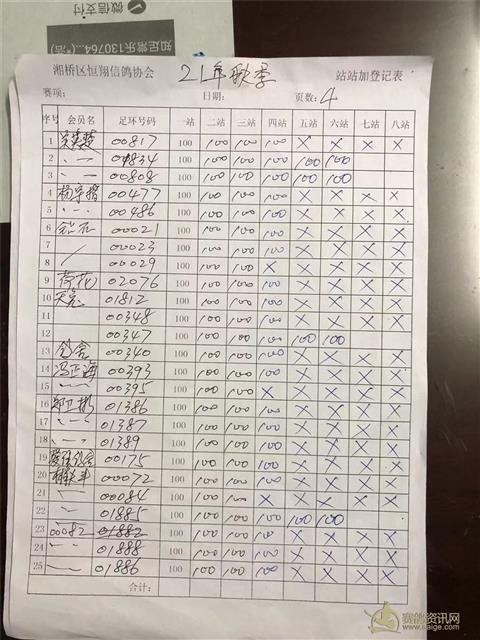 微信支付
知足常乐130764...(*浩)
湘桥区恒翔信鸽协会 21年秋季 站站加登记表
赛项: 日期: 页数: 4
序号 会员名 足环号码 一站 二站 三站 四站 五站 六站 七站 八站
1 00817 100 100 100 100 X X X X
2 01834 100 100 100 100 100 100
3 00808 100 100 100 100 100 100
4 00477 100 100 100 100 X X X X
5 00486 100 100 100 100 X X X X
6 00021 100 100 100 100 X X X X
7 00023 100 100 100 100 X X X X
8 00029 100 100 100 X X X X X
9 荷花 02076 100 100 100 100 X X X X
10 01812 100 100 100 100 X X X X
11 00348 100 100 100 100 X X X X
12 00347 100 100 100 100 100 100
13 00340 100 100 100 100 X X X X
14 冯正海 00393 100 100 100 100 X X X X
15 00395 100 100 100 X X X X X
16 郑卫彬 01386 100 100 100 100 X X X X
17 01387 100 100 100 100 X X X X
18 01389 100 100 100 100 X X X X
19 00175 100 100 100 100 X X X X
20 00072 100 100 100 100 X X X X
21 00084 100 100 100 X X X X X
22 01885 100 100 100 100 100 100
23 00082 01882 100 100 100 100 X X X X
24 01888 100 100 100 100 X X X X
25 01886 100 100 100 100 X X X X
合计:
赛鸽资讯网
www.saige.com